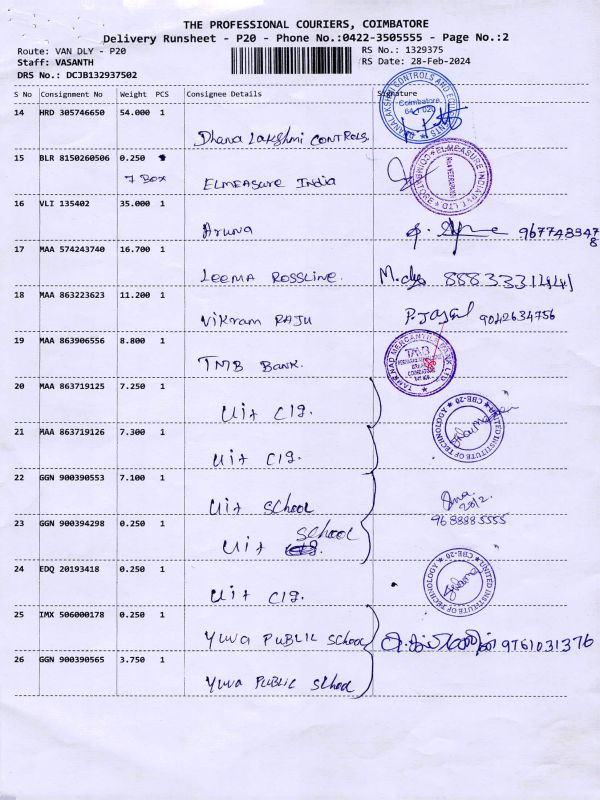 THE PROFESSIONAL COURIERS, COIMBATORE
Delivery Runsheet - P20 - Phone No.:0422-3505555 - Page No.:2
Route: VAN DLY - P20
RS No.: 1329375
Staff: VASANTH
RS Date: 28-Feb-2024
DRS No.: DCJB132937502
S No Consignment No Weight PCS Consignee Details Signature
14 HRD 305746650 54.000 1
Dhana Lakshmi CONTROLS
Coimbatore
15 BLR 8150260506 0.250
7 Box ELMEASURE India
16 VLI 135402 35.000 1
Aruna
17 MAA 574243740 16.700 1
LEEMA ROSSLINE. 8883331441
18 MAA 863223623 11.200 1
Vikram RAJU 9042634756
19 MAA 863906556 8.800 1
TMB Bank.
TAMILNAD MERCANTILE BANK LTD
TMB
20 MAA 863719125 7.250 1
Uit Clg.
UNITED INSTITUTE OF TECHNOLOGY
CBE-20
21 MAA 863719126 7.300 1
Uit Clg.
22 GGN 900390553 7.100 1
Uit School
28/2.
23 GGN 900394298 0.250 1
Uit School
24 EDQ 20193418 0.250 1
Uit Clg.
UNITED INSTITUTE OF TECHNOLOGY
CBE-20
25 IMX 506000178 0.250 1
Yuva PUBLIC School 9761031376
26 GGN 900390565 3.750 1
Yuva PUBLIC School